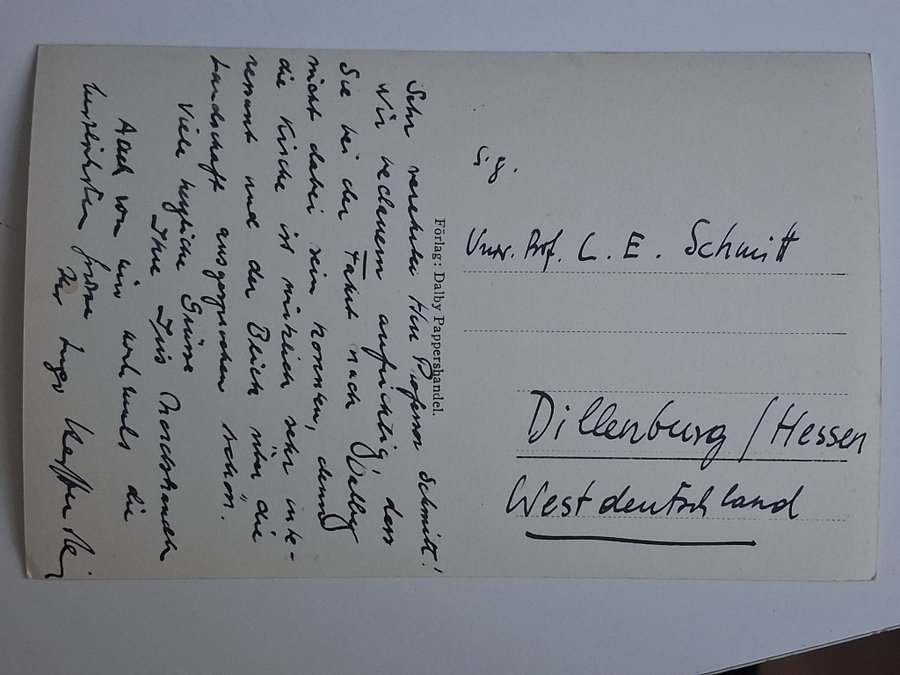 Sehr verehrter Herr Professor Schmitt!
Wir bedauern aufrichtig, dass
Sie bei der Fahrt nach Dalby
nicht dabei sein konnten, denn
die Kirche ist wirklich sehr inte-
ressant und der Blick über die
Landschaft ausgesprochen schön.
Viele herzliche Grüsse
Ihre
Auch von mir nochmals die
herzlichsten Grüsse
Ihr Ingo
Förlag: Dalby Pappershandel.
S. g.
Univ. Prof. L. E. Schmitt
Dillenburg / Hessen
Westdeutschland